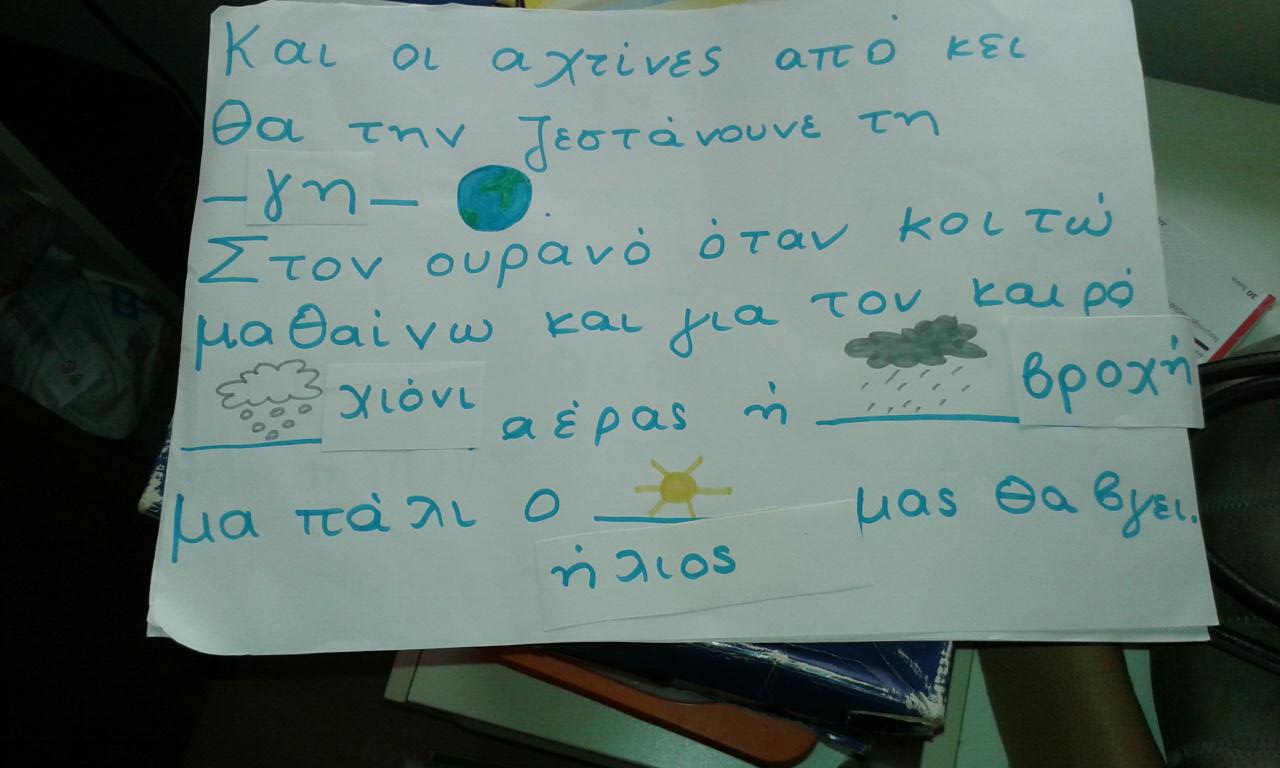 Και οι αχτίνες από κει
θα την ζεστάνουνε τη
γη
Στον ουρανό όταν κοιτώ
μαθαίνω και για τον καιρό
χιόνι αέρας ή βροχή
μα πάλι ο ήλιος μας θα βγει.